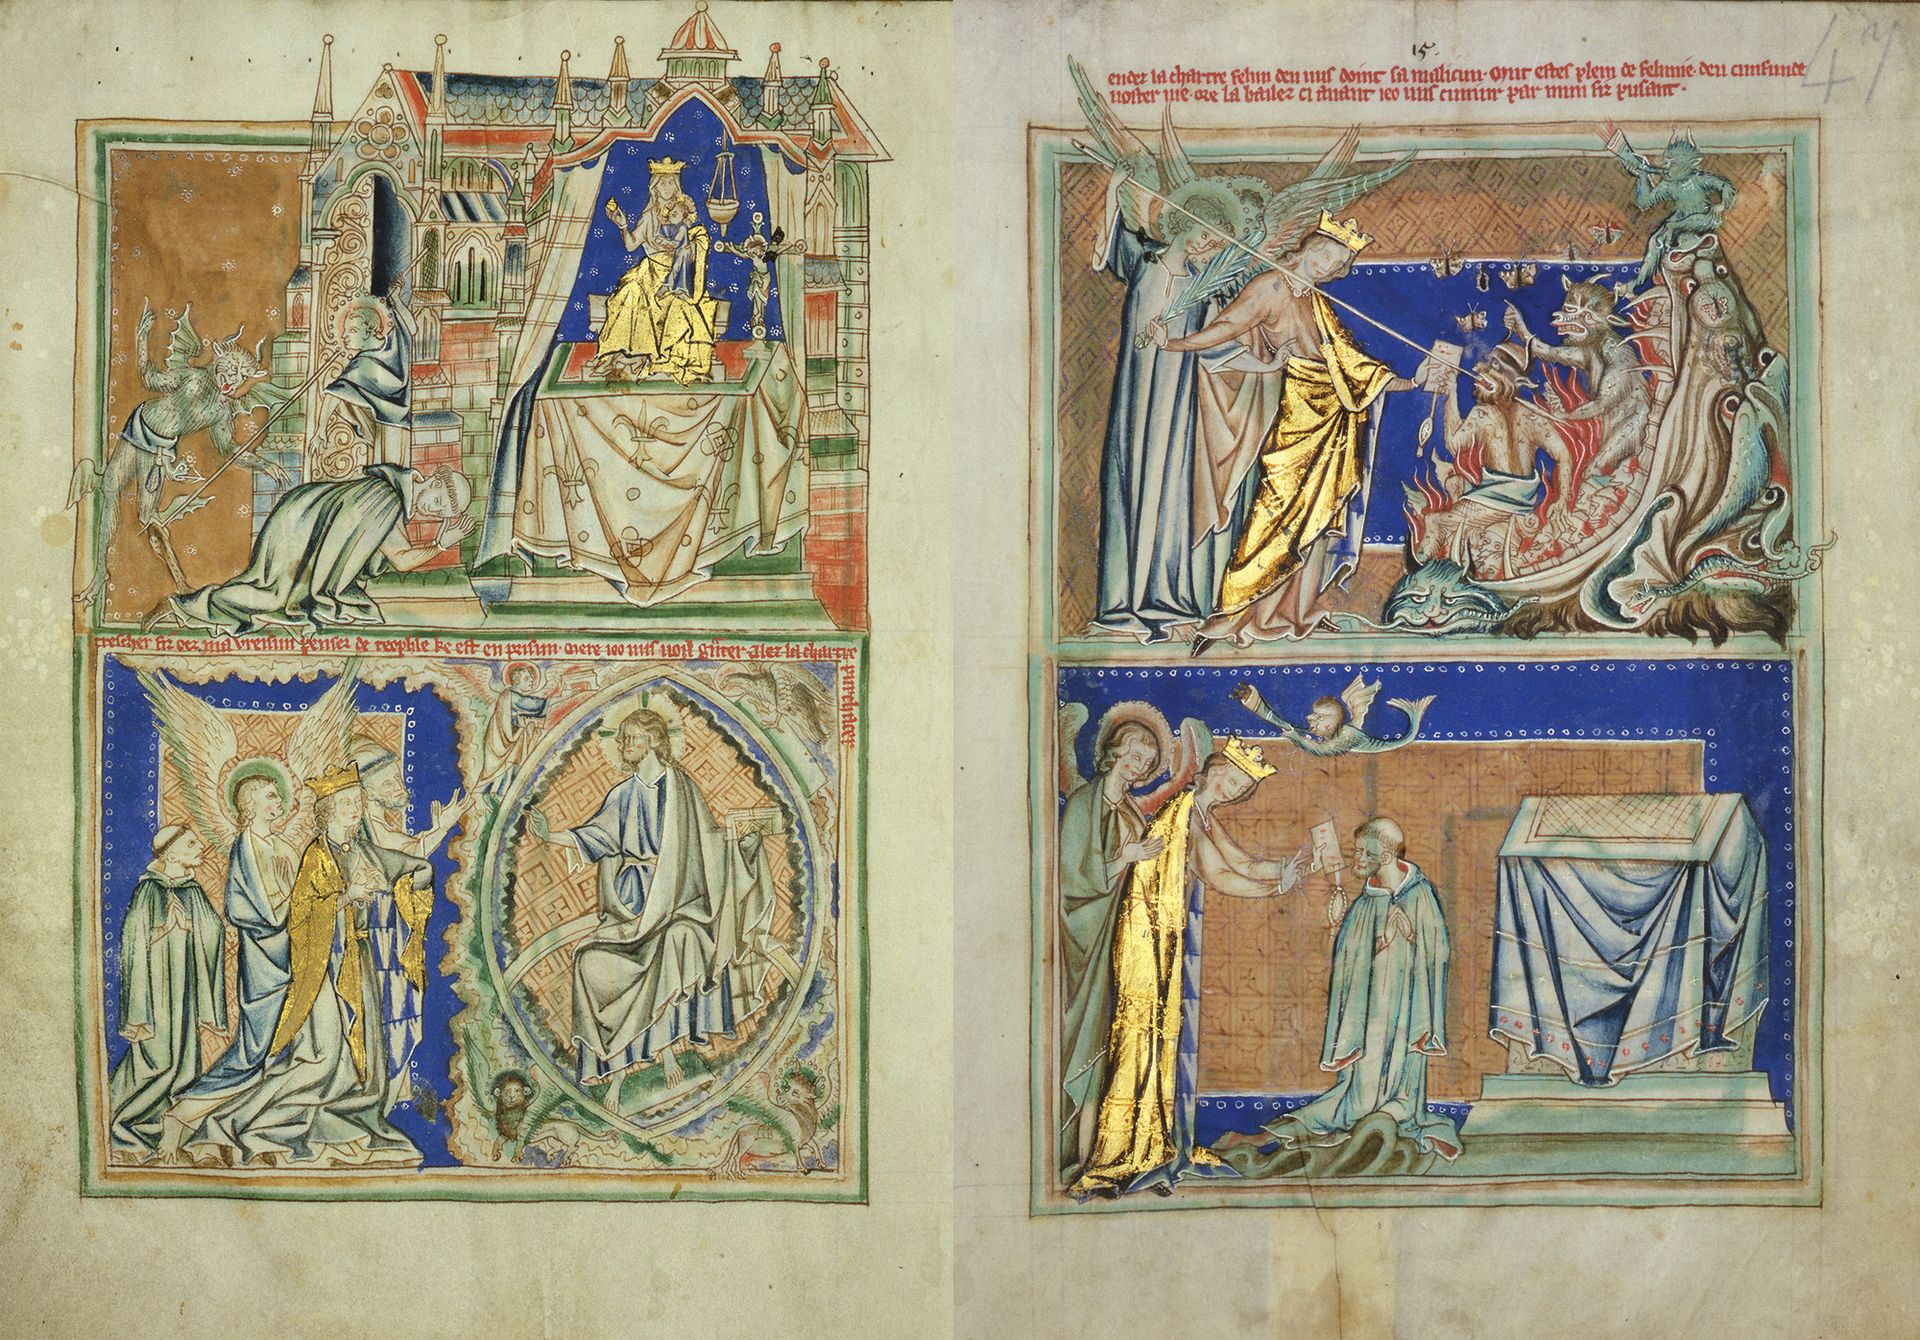 trescher fiz oez ma ureisun penser de teophle ke est en prisun. mere ieo uus uoil gͣnter. alez la chartre
purchacer
15.
47
endez la chartre felun deu uus doint sa maliciun. Qꝛ ut estes plein de felunie. deu cunfunde
uoster uie. ore la bailez ci auant ieo uus cumur par mun fiz pusant.